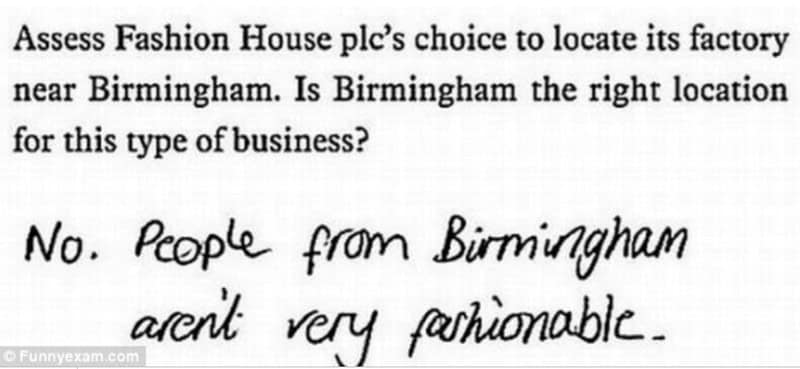 Assess Fashion House plc's choice to locate its factory
near Birmingham. Is Birmingham the right location
for this type of business?
No. People from Birmingham
aren't very fashionable.
© Funnyexam.com